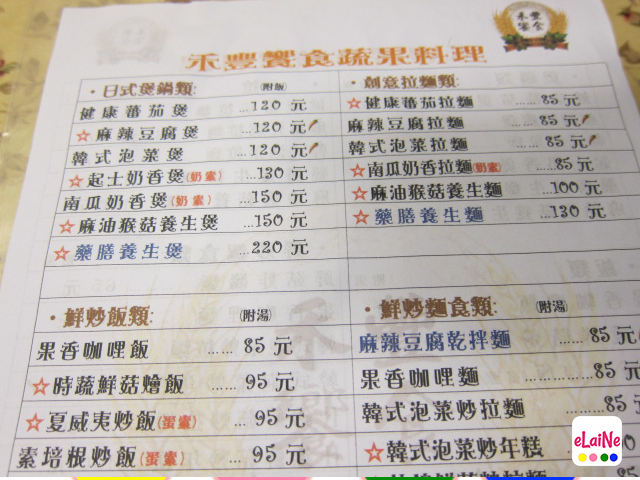 禾豐
饗食
禾豐饗食蔬果料理
・日式煲鍋類: (附飯)
健康蕃茄煲 ...120 元
☆麻辣豆腐煲 ...120 元
韓式泡菜煲 ...120 元
☆起士奶香煲(奶素) ...130 元
南瓜奶香煲(奶素) ...150 元
☆麻油猴菇養生煲 ...150 元
☆藥膳養生煲 ...220 元
・創意拉麵類:
☆健康蕃茄拉麵 ......85 元
麻辣豆腐拉麵 ......85 元
韓式泡菜拉麵 ......85 元
☆南瓜奶香拉麵(奶素) ......85元
☆麻油猴菇養生麵 ...100 元
☆藥膳養生麵 ...130 元
・鮮炒飯類: (附湯)
果香咖哩飯 ...... 85 元
☆時蔬鮮菇燴飯 ...... 95 元
☆夏威夷炒飯(蛋素) ... 95 元
素培根炒飯(蛋素) ... 95 元
・鮮炒麵食類: (附湯)
麻辣豆腐乾拌麵 ...... 85 元
果香咖哩麵 ............85 元
韓式泡菜炒拉麵 ......85
☆韓式泡菜炒年糕
eLaiNe